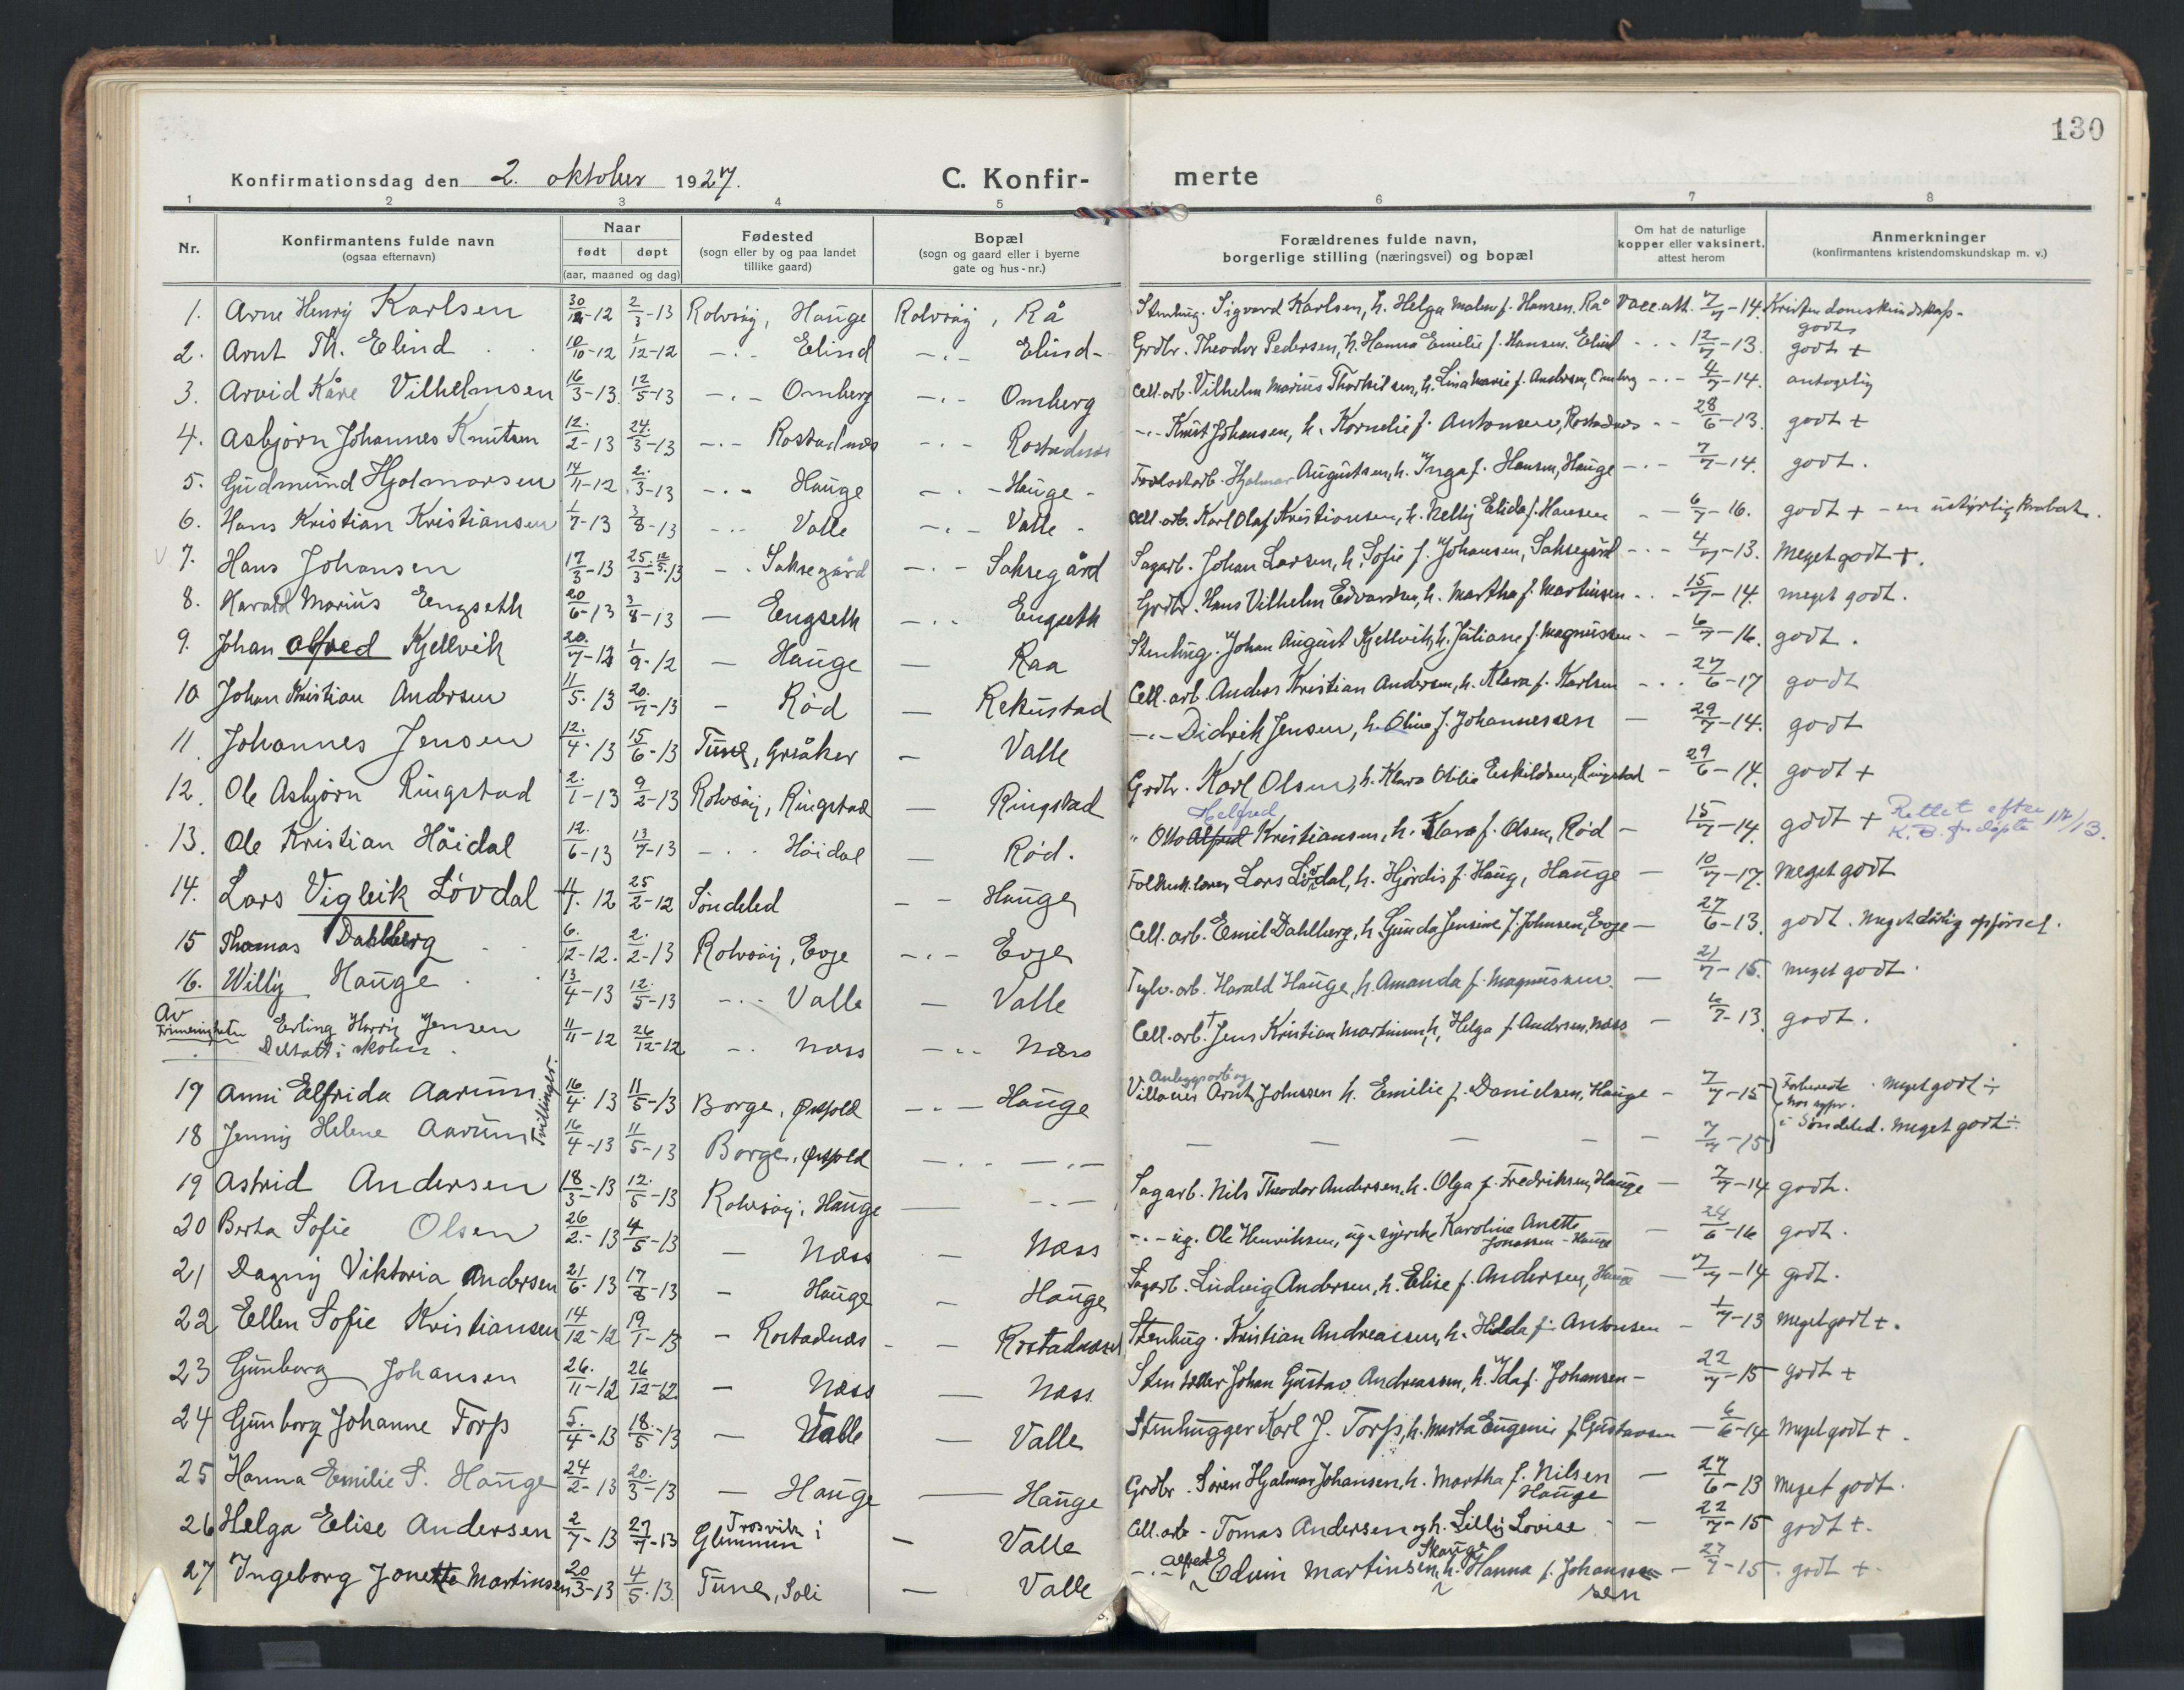 130
Konfirmationsdag den 2. oktober 1927.
C. Konfir- merte
1 2 3 4 5 6 7 8
Nr.
Konfirmantens fulde navn
(ogsaa efternavn)
Naar
født døpt
(aar, maaned og dag)
Fødested
(sogn eller by og paa landet
tillike gaard)
Bopæl
(sogn og gaard eller i byerne
gate og hus-nr.)
Forældrenes fulde navn,
borgerlige stilling (næringsvei) og bopæl
Om hat de naturlige
kopper eller vaksinert,
attest herom
Anmerkninger
(konfirmantens kristendomskundskap m. v.)
1. Arne Henry Karlsen 30/12-12 2/3-13 Rolvsøy, Hauge Rolvsøy, Rå Stenhug. Sigvard Karlsen, h. Helga Malen f. Hansen. Rå Vacc. att. 7/7-14. Kristendomskundskap-
godt
2. Arnt Th. Elind 10/10-12 1/12-12 -.- Elind -.- Elind- Grdbr. Theodor Pedersen, h. Hanna Emilie f. Hansen. Elind - - - 12/7-13. godt +
3. Arvid Kåre Vilhelmsen 16/3-13 12/5-13 -.- Omberg -.- Omberg Cell.arb. Vilhelm Marius Thorkilsen, h. Lina Marie f. Andersen, Omberg -.- 4/7-14. antagelig
4. Asbjørn Johannes Knutsen 12./2-13 24./3-13 -.- Rostadnæs -.- Rostadnæs -.- Knut Johansen, h. Kornelie f. Antonsen, Rostadnæs - - 28/6-13. godt +
5. Gudmund Hjalmarsen 14/11-12 2./3-13 -.- Hauge -.- Hauge - Hjalmar Augustsen, h. Inga f. Hansen, Hauge -.- 7/7-14. godt.
6. Hans Kristian Kristiansen 1/7-13 3/8-13 -.- Valle -.- Valle - Cell.arb. Karl Olaf Kristiansen, h. Nelly Elida f. Hansen - - 6/7-16. godt + - en ustyrlig krabat.
7. Hans Johansen 17/3-13 25./3- 12/5-13 -. Saksegård -.- Saksegård Sagarb. Johan Larsen, h. Sofie f. Johansen, Saksegård -.- 4/7-13. Meget godt +.
8. Harald Marius Engseth 20/6-13 3/8-13 - Engseth -.- Engseth Grdbr. Hans Vilhelm Edvardsen, h. Martha f. Martinsen -.- 15/7-14. meget godt.
9. Johan Alfred Kjellvik 20./7-12 1/9-12 - Hauge - Raa Stenhug. Johan August Kjellvik, h. Juliane f. Magnussen - - 6/7-16. godt.
10 Johan Kristian Andersen 11/5-13 20./7-13 - Rød - Rekustad Cell.arb. Anders Kristian Andersen, h. Klara f. Karlsen - . . 27/6-17 godt
11. Johannes Jensen 12./4-13 15/6-13 Tune, Greåker - Valle -.- Didrik Jensen, h. Oline f. Johannessen - 29/7-14. godt
12. Ole Asbjørn Ringstad 2./1-13 9/2-13 Rolvsøy, Ringstad - Ringstad Grdbr. Karl Olsen, h. Klara Otilie Eskildsen, Ringstad - 29/6-14. godt +
Helfred
13. Ole Kristian Höidal 12./6-13 13/7-13 - . - Höidal - Rød. " Otto Alfred Kristiansen, h. Klara f. Olsen, Rød - 15/7-14. godt + Rettet efter
K.B. for døpte 14/13.
14. Lars Vigleik Lövdal 11/1-12 25/2-12 Søndeled - - Hauge Folkesk. lærer Lars Lövdal, h. Hjørdis f. Haug, Hauge - 10/7-17. Meget godt
15 Thomas Dahlberg 6./12-12. 2./2-13 Rolvsøy, Evje -.- Evje Cell.arb. Emil Dahlberg, h. Gunda Jensine f. Johnsen, Evje - 27/6-13. godt. Meget dårlig opførsel.
16. Willy Hauge 13/4-13 12./5-13 -.- Valle - Valle Teglv.arb. Harald Hauge, h. Amanda f. Magnussen. - 21/7-15. Meget godt.
Av
Frimenigheten Erling Harry Jensen 11/11-12 26/12-12 -. Næss -.- Næss Cell.arb. † Jens Kristian Martinsen, h. Helga f. Andersen, Næss - 6/7-13. godt.
Deltatt i skolen.
Tvillinger.
17 Anni Elfrida Aarum 16/4-13 11/5-13 Borge, Østfold -.- Hauge Anleggsarb. og
Villaeier Arnt Johnssen h. Emilie f. Danielsen, Hauge - 7/7-15 Forberedt
hos sogpr. Meget godt ÷
18 Jenny Helene Aarum 16/4-13 11/5-13 Borge, Østfold -.- -.- - - - - - 7/7-15 i Søndeled. Meget godt ÷.
19 Astrid Andersen 18/3-13 12./5-13 Rolvsøy, Hauge - -.- Sagarb. Nils Theodor Andersen, h. Olga f. Fredriksen, Hauge - 7/7-14 godt.
20 Berta Sofie Olsen 26/2-13 4/5-13 - Næss - Næss -.- ug. Ole Henriksen, ug. Karoline Anette
Jonassen - Hauge - 24/6-16 godt.
21 Dagny Viktoria Andersen 21/6-13 17/8-13 - Hauge - Hauge Sagarb. Ludvig Andersen, h. Elise f. Andersen, Hauge - 7/7-14 godt.
22 Ellen Sofie Kristiansen 14/12-12 19/1-13 - Rostadnæs - - Rostadnæs Stenhug. Kristian Andreassen, h. Hilda f. Antonsen - 1/7-13 Meget godt +.
23 Gunborg Johansen 26./11-12 26/12-12 - Næss - Næss. Johan Gustav Andreassen, h. Ida f. Johansen - 22/7-15 godt +
24 Gunborg Johanne Torp 5./4-13 18./5-13 - Valle - Valle Stenhugger Karl J. Torp, h. Marta Eugenie f. Gustavsen - 6/6-14 Meget godt +.
25 Hanna Emilie S. Hauge 24/2-13 20./3-13 - Hauge - Hauge Grdbr. Søren Hjalmar Johansen, h. Martha f. Nilsen
Hauge - 27/6-13 Meget godt.
26 Helga Elise Andersen 2/7-13 27/7-13 Trosvik i
Glemmen - Valle Cell.arb - Tomas Andersen og h. Lilly Lovise
Skauge - - 22/7-15 godt +.
27 Ingeborg Jonette Martinsen 20/3-13 4/5-13. Tune, Soli - Valle -.- Alfred Edvin Martinsen, h. Hanna f. Johansen
sen - 27/7-15. godt +.